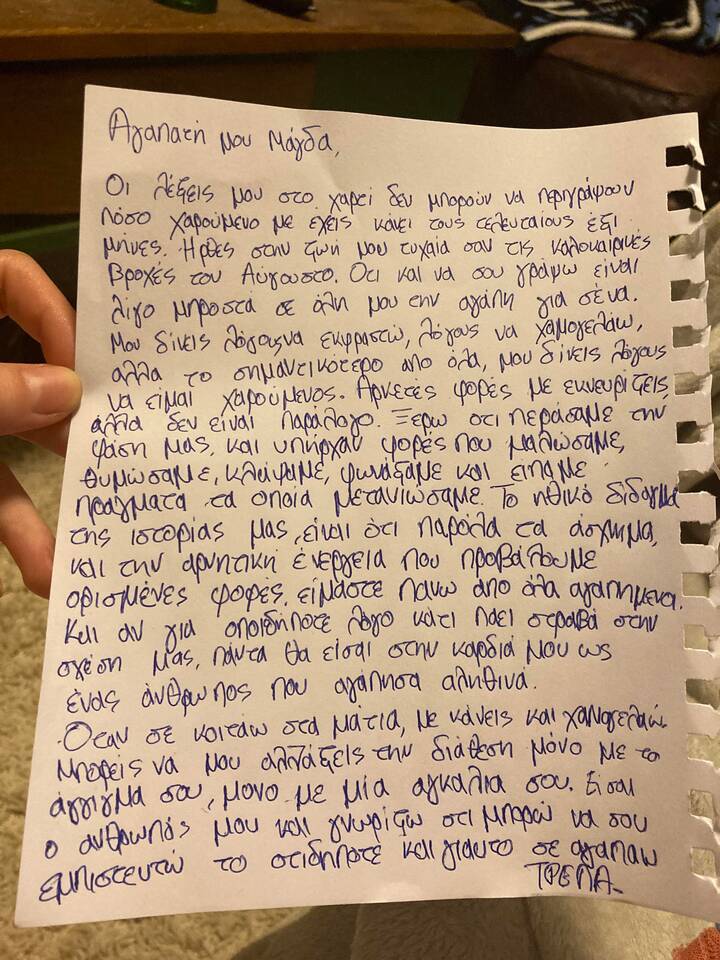 Αγαπατή μου Μάγδα,
Οι λέξεις μου στο χαρτί δεν μπορούν να περιγράψουν
πόσο χαρούμενο με έχεις κάνει τους τελευταίους έξι
μήνες. Ηρθες στην ζωή μου τυχαία σαν τις καλοκαιρινές
βροχές του Αύγουστο. Οτι και να σου γράψω είναι
λίγο μπροστά σε όλη μου την αγάπη για σένα.
Μου δίνεις λόγους να εκφραστώ, λόγους να χαμογελάω,
αλλα το σημαντικότερο απο όλα, μου δίνεις λόγους
να είμαι χαρούμενος. Αρκετές φορές με εκνευρίζεις,
άλλα δεν είναι παράλογο. Ξερω οτι περάσαμε την
φάση μας, και υπήρχαν φορές που μαλώσαμε,
θυμώσαμε, κλάψαμε, φωνάξαμε και ειπαμε
πράγματα τα οποια μετανιώσαμε. Το ηθικό δίδαγμα
της ιστορίας μας, είναι ότι παρόλα τα άσχημα,
και την αρνητική ένεργεια που προβάλουμε
ορισμένες φοφές, είμαστε πανω απο όλα αγαπημενοι.
Και αν για οποιδήποτε λόγο κατι πάει στραβά στην
σχέση μας, πάντα θα είσαι στην καρδιά μου ως
ένας άνθρωπος που αγάπησα αληθινα.
Οταν σε κοιτάω στα μάτια, με κάνεις και χαμογελαώ.
Μπορείς να μου αλλάξεις την διάθεση μόνο με το
άγγιγμα σου, μονο με μία αγκαλια σου. Είσαι
ο ανθρωπός μου και γνωρίζω οτι μπορώ να σου
εμπιστευτώ το οτιδήποτε και γιαυτο σε αγαπαω
ΤΡΕΛΑ-